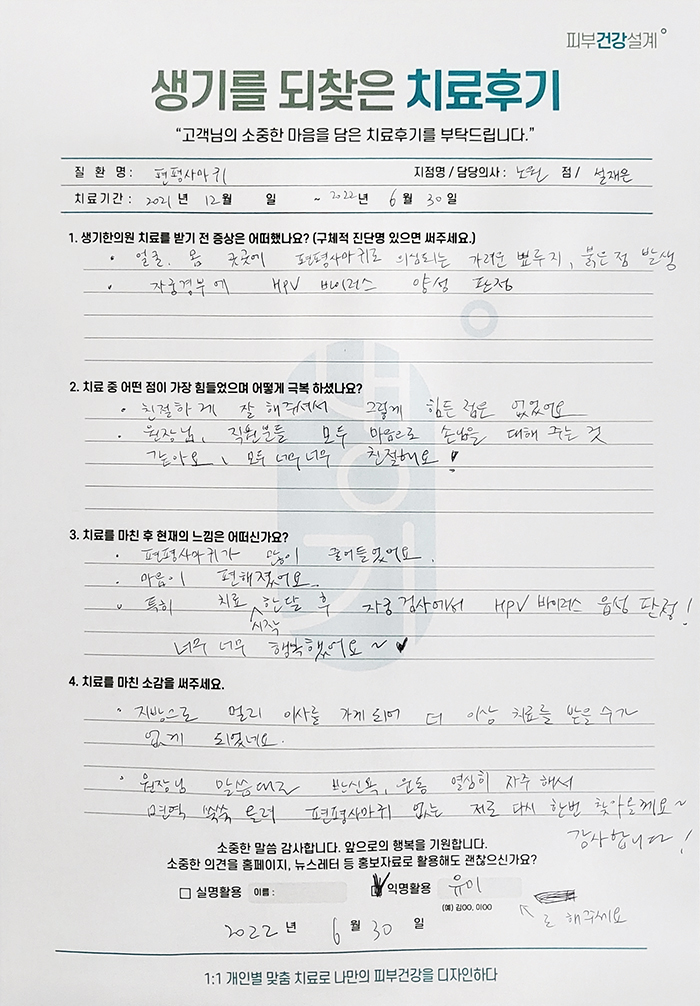 피부건강설계
생기를 되찾은 치료후기
“고객님의 소중한 마음을 담은 치료후기를 부탁드립니다.”
질 환 명 : 편평사마귀 지점명 / 담당의사 : 노원 점 / 설재은
치료기간 : 2021 년 12 월 일 ~ 2022 년 6 월 30 일
1. 생기한의원 치료를 받기 전 증상은 어떠했나요? (구체적 진단명 있으면 써주세요.)
· 얼굴. 몸 곳곳에 편평사마귀로 의심되는 가려운 뾰루지, 붉은 점 발생
· 자궁경부에 HPV 바이러스 양성 판정
2. 치료 중 어떤 점이 가장 힘들었으며 어떻게 극복 하셨나요?
· 친절하게 잘 해주셔서 그렇게 힘든 점은 없었어요
· 원장님, 직원분들 모두 마음으로 손님을 대해 주는 것
같아요, 모두 너무 너무 친절해요!
3. 치료를 마친 후 현재의 느낌은 어떠신가요?
· 편평사마귀가 많이 줄어들었어요.
· 마음이 편해졌어요.
· 특히 치료 시작 한달 후 자궁검사에서 HPV 바이러스 음성 판정!
너무 너무 행복했어요~ ♥
4. 치료를 마친 소감을 써주세요.
· 지방으로 멀리 이사를 가게 되어 더 이상 치료를 받을 수가
없게 되었네요.
· 원장님 말씀대로 반신욕, 운동 열심히 자주 해서
면역 쑥쑥 올려 편평사마귀 없는 저로 다시 한번 찾아올께요~
감사합니다!
소중한 말씀 감사합니다. 앞으로의 행복을 기원합니다.
소중한 의견을 홈페이지, 뉴스레터 등 홍보자료로 활용해도 괜찮으신가요?
□ 실명활용 이름 : ☑ 익명활용 유미
(예) 김OO, 이OO
로 해주세요
2022 년 6 월 30 일
1:1 개인별 맞춤 치료로 나만의 피부건강을 디자인하다